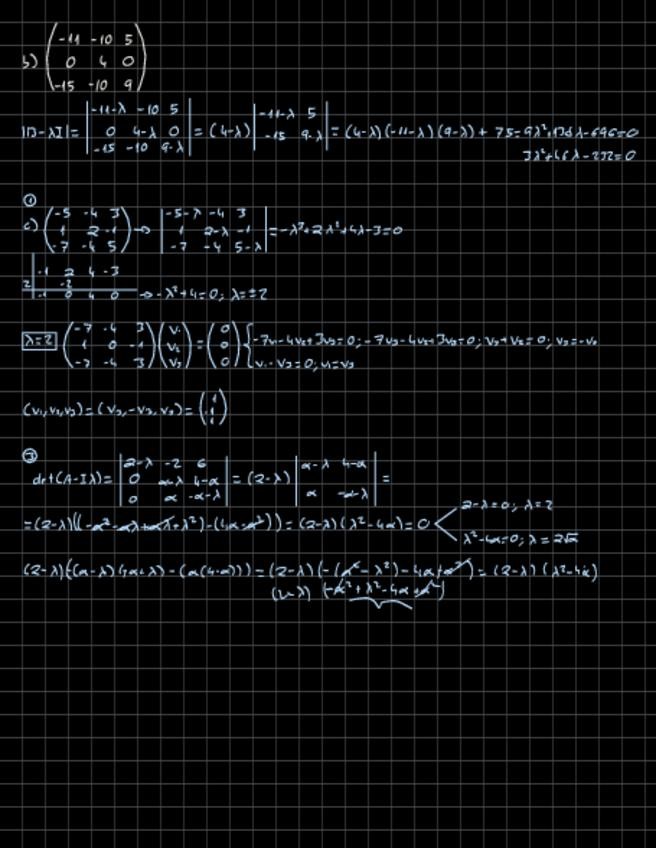 b) (-11 -10 5
0 4 0
-15 -10 9)
|B-λI| = |-11-λ -10 5; 0 4-λ 0; -15 -10 9-λ| = (4-λ) |-11-λ 5; -15 9-λ| = (4-λ)(-11-λ)(9-λ) + 75=
①
c) (-5 -4 3; 1 2 -1; -7 -4 5) → |-5-λ -4 3; 1 2-λ -1; -7 -4 5-λ| = -λ³+2λ²+4λ-3=0
-1 2 4 -3
2 -2
-1 0 4 0 → -λ²+4=0; λ=±2
λ=2 (-7 -4 3; 1 0 -1; -7 -4 3) (v₁; v₂; v₃) = (0; 0; 0) { -7v₁-4v₂+3v₃=0; -7v₃-4v₂+3v₃=0; v₃+v₂=0; v₂=-v₃
v₁-v₃=0; v₁=v₃
(v₁,v₂,v₃)=(v₃,-v₃,v₃)=
det(A-Iλ)= |2-λ -2 6; 0 α-λ 4-α; 0 α -α-λ| = (2-λ) |α-λ 4-α; α -α-λ| =
=(2-λ)((-α²-αλ+αλ+λ²)-(4α-α²)) = (2-λ)(λ²-4α)=0
2-λ=0; λ=2
λ²-4α=0; λ=2√α
= (2-λ)(λ²-4α)
(2-λ) (-α²+λ²-4α+α²)